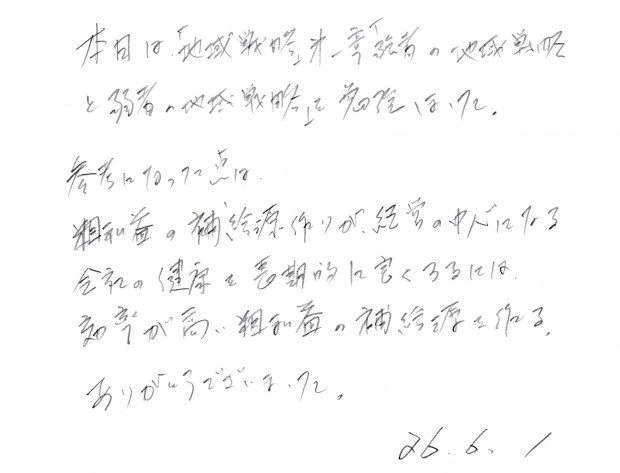 本日は「地域戦略」第一章「強者の地域戦略
と弱者の地域戦略」を勉強しました。
参考になった点は、
粗利益の補給源作りが、経営の中心になる
会社の健康を長期的に良くするには、
効率が高い粗利益の補給源を作る。
ありがとうございました。
26.6.1